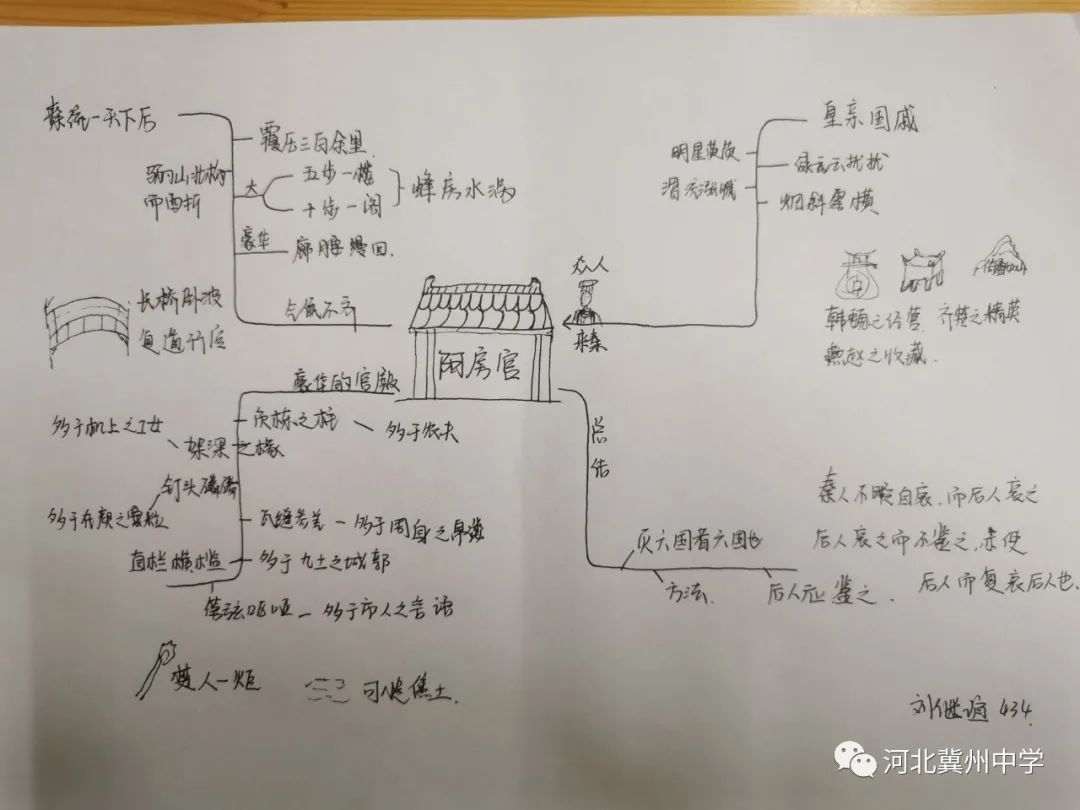 秦统一天下后
覆压三百余里
骊山北构
而西折
大
五步一楼
十步一阁
蜂房水涡
豪华
廊腰缦回.
长桥卧波
复道行
气低不齐
皇亲国戚
明星荧荧
绿云云扰扰
渭流涨腻
烟斜雾横
众人
来秦
韩魏之经营.齐楚之精英
燕赵之收藏.
阿房官
豪华的官殿
负栋之柱
多于农夫
多于机上之工女
架梁之椽
钉头磷磷
多于在庾之粟粒
瓦缝参差
多于周身之帛缕
直栏横槛
多于九土之城郭
管弦呕哑
多于市人之言语
楚人一炬
可怜焦土.
总
结
灭六国者六国也
方法.
后人
鉴之.
秦人不暇自哀,而后人哀之
后人哀之而不鉴之,亦使
后人而复哀后人也.
刘
434.
河北冀州中学